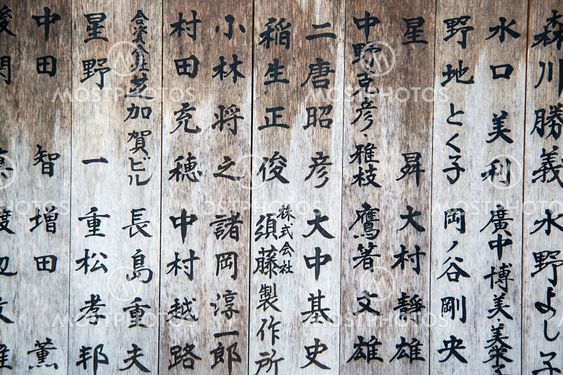 森川勝義 水野よし子
水口美利 廣中博美・美
野地とく子 岡ノ谷剛央
星 昇 大村静雄
中野吉彦・雅枝 鷹箸文雄
二唐昭彦 大中基史
稲生正俊 株式会社須藤製作所
小林将之 諸岡淳一郎
村田充穂 中村越路
合資会社芝加賀ビル 長島重夫
星野一 重松孝邦
中田智 増田薫